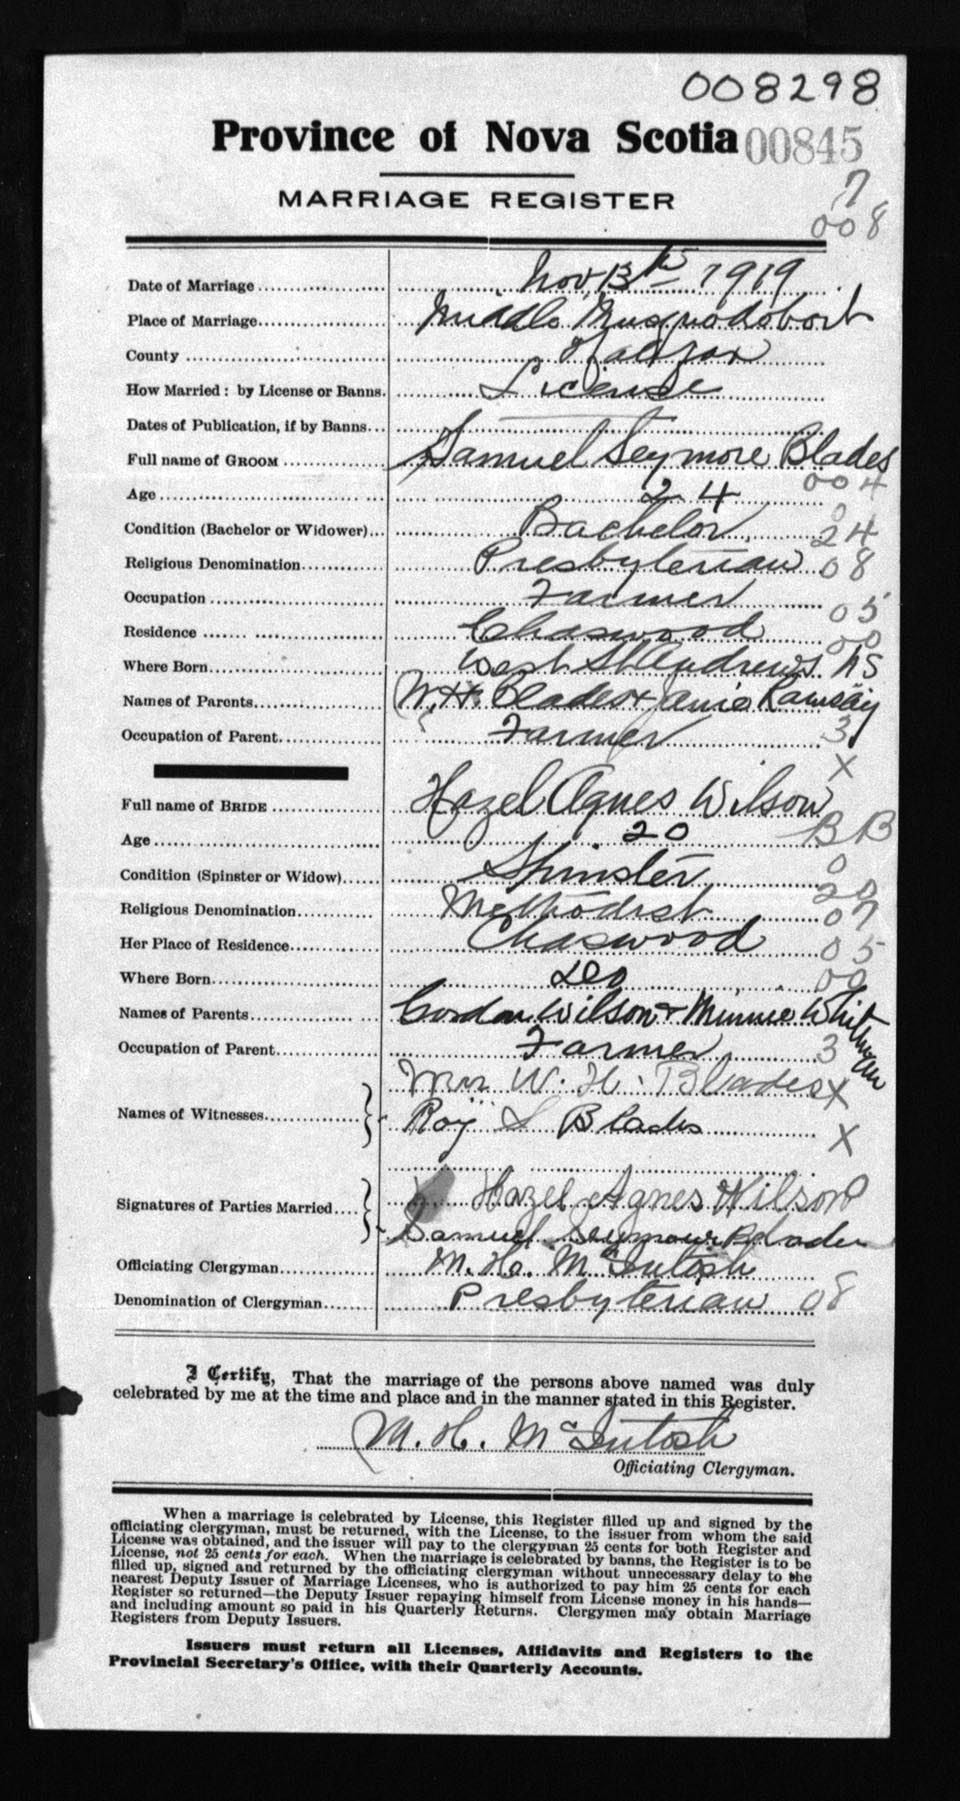 008298
Province of Nova Scotia 00845
7
MARRIAGE REGISTER
008
Date of Marriage Nov 13th 1919
Place of Marriage Middle Musquodoboit
County Halifax
How Married: by License or Banns. License
Dates of Publication, if by Banns
Full name of GROOM Samuel Seymore Blades
004
Age 24
0
Condition (Bachelor or Widower) Bachelor 24
Religious Denomination Presbyterian 08
Occupation Farmer 05
Residence Chaswood 00
Where Born West St Andrews NS
Names of Parents W. H. Blades + Janie Ramsay
Occupation of Parent Farmer 3
X
Full name of BRIDE Hazel Agnes Wilson
Age 20 BB
0
Condition (Spinster or Widow) Spinster 20
Religious Denomination Methodist 07
Her Place of Residence Chaswood 05
Where Born do 00
Names of Parents Gordon Wilson + Minnie Whitman
Occupation of Parent Farmer 3
Mrs W. H. Blades X
Names of Witnesses
Roy S Blades X
Hazel Agnes Wilson
Signatures of Parties Married
Samuel Seymour Blades
Officiating Clergyman M. H. McIntosh
Denomination of Clergyman Presbyterian 08
I Certify, That the marriage of the persons above named was duly
celebrated by me at the time and place and in the manner stated in this Register.
M. H. McIntosh
Officiating Clergyman.
When a marriage is celebrated by License, this Register filled up and signed by the
officiating clergyman, must be returned, with the License, to the issuer from whom the said
License was obtained, and the issuer will pay to the clergyman 25 cents for both Register and
License, not 25 cents for each. When the marriage is celebrated by banns, the Register is to be
filled up, signed and returned by the officiating clergyman without unnecessary delay to the
nearest Deputy Issuer of Marriage Licenses, who is authorized to pay him 25 cents for each
Register so returned—the Deputy Issuer repaying himself from License money in his hands—
and including amount so paid in his Quarterly Returns. Clergymen may obtain Marriage
Registers from Deputy Issuers.
Issuers must return all Licenses, Affidavits and Registers to the
Provincial Secretary's Office, with their Quarterly Accounts.